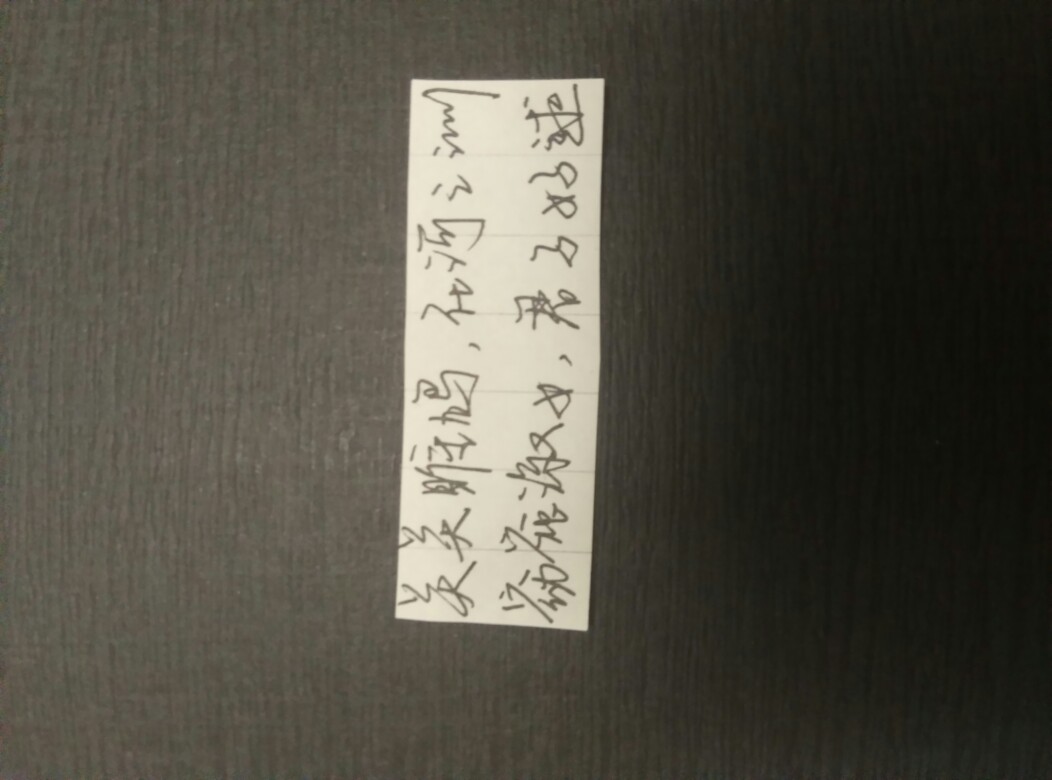 关关雎鸠，在河之洲
窈窕淑女，君子好逑